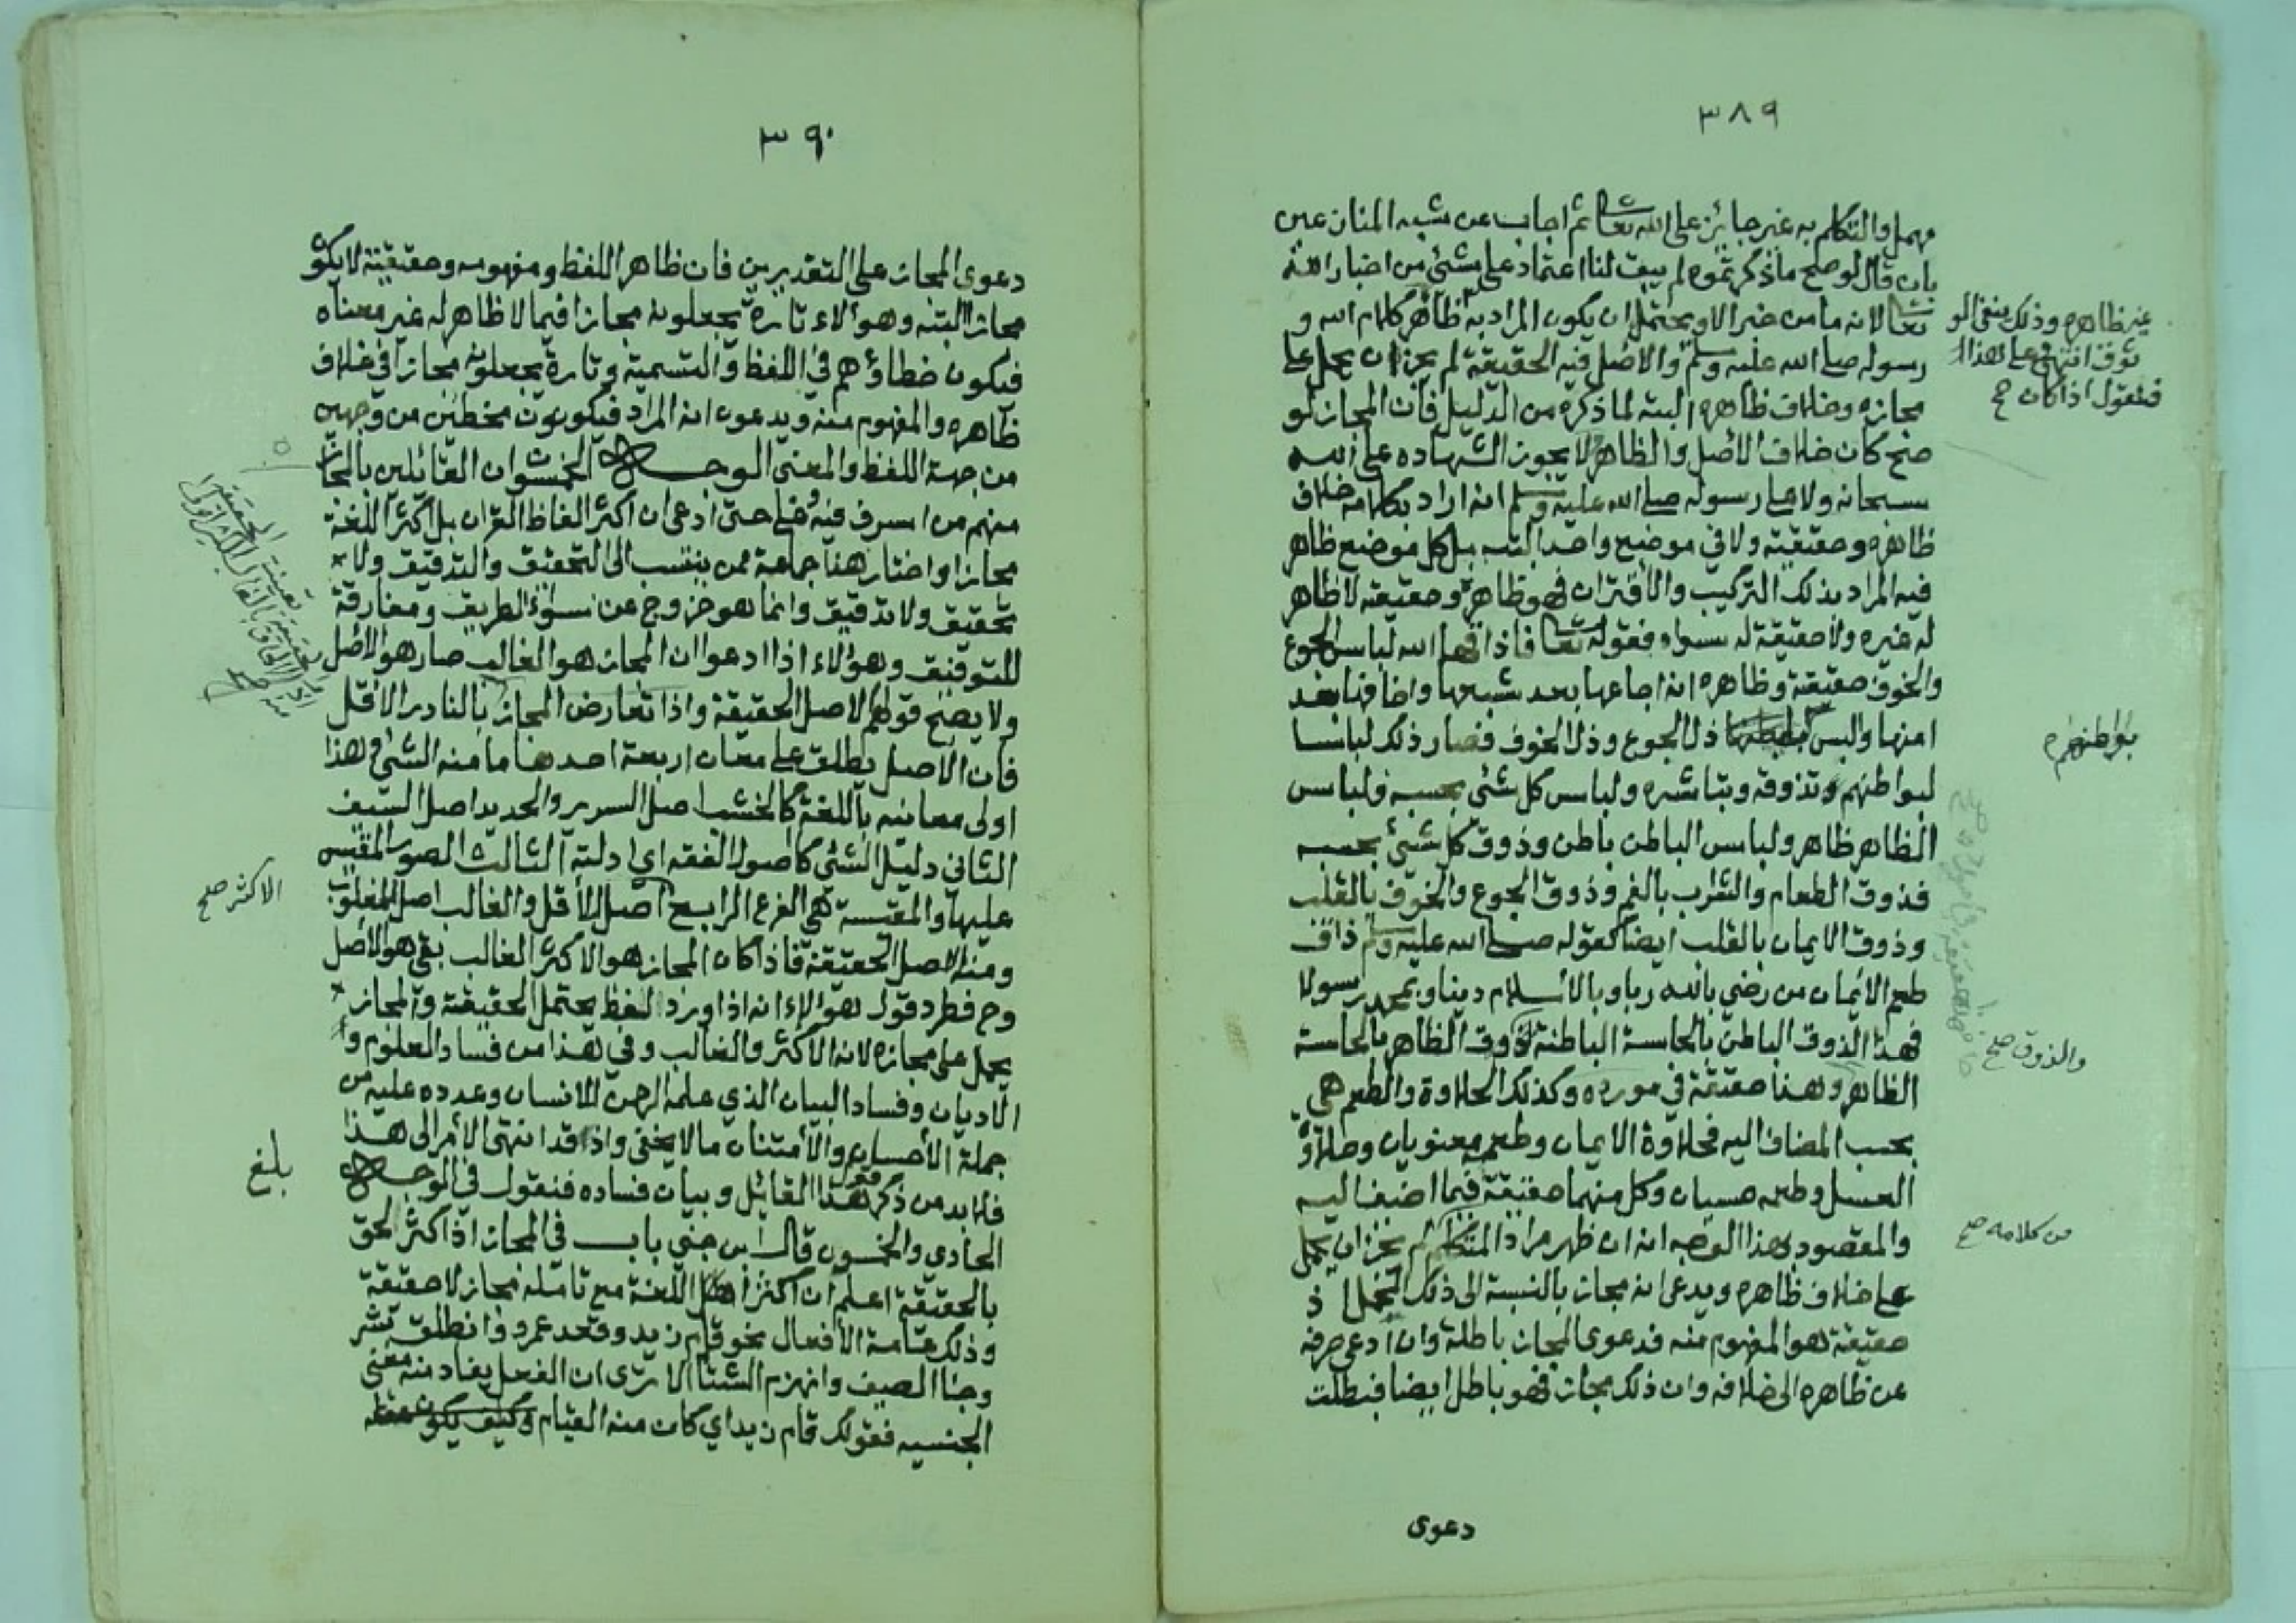 ٣٨٩
مهمل والتكلم به غير جائز على الله تعالى ثم اجاب عن شبه المنازعين
بان قال لو صح ما ذكرتموه لم يبق لنا اعتماد على شئ من اخبار الله
تعالى لانه ما من خبر الا ويحتمل ان يكون المراد به غير ظاهره وذلك ينفي الوثوق انتهى وعلى هذا فنقول اذا كان ظاهر كلام الله و
رسوله صلى الله عليه وسلم والاصل فيه الحقيقة لم يجز ان يحمل على
مجازه وخلاف ظاهره البتة لما ذكره من الدليل فان المجاز لو
صح كان خلاف الاصل والظاهر ولا يجوز الشهاده على الله
سبحانه ولا على رسوله صلى الله عليه وسلم انه اراد بكلامه خلاف
ظاهره وحقيقته ولا في موضع واحد البته بل كل موضع ظاهر
فيه المراد بذلك التركيب والاقتران فهو ظاهره وحقيقته لا ظاهر
له غيره ولا حقيقة له سواه فقوله تعالى فاذاقها الله لباس الجوع
والخوف حقيقته وظاهره انه اجاعها بعد شبعها واخافها بعد
امنها والبس بواطنهم ذل الجوع وذل الخوف فصار ذلك لباسا
لبواطنهم وتذوقه وتباشره ولباس كل شئ بحسبه فلباس
الظاهر ظاهر ولباس الباطن باطن وذوق كل شئ بحسبه
فذوق الطعام والشراب بالفم وذوق الجوع والخوف بالقلب
وذوق الايمان بالقلب ايضا كقوله صلى الله عليه وسلم ذاق
طعم الايمان من رضي بالله ربا وبالاسلام دينا وبمحمد رسولا
فهذا الذوق الباطن بالحاسة الباطنة والذوق الظاهر بالحاسة
الظاهره وهذا حقيقة في مورده وكذلك الحلاوة والطعم هي
بحسب المضاف اليه فحلاوة الايمان وطعمه معنويان وحلاوة
العسل وطعمه حسيان وكل منهما حقيقة فيما اضيف اليه
والمقصود بهذا الوجه انه ان ظهر مراد المتكلم من كلامه لم يجز ان يحمل
على خلاف ظاهره ويدعى انه مجاز بالنسبة الى ذلك المحمل اذ
حقيقته هو المفهوم منه فدعوى المجاز باطلة وان ادعى صرفه
عن ظاهره الى خلافه وان ذلك مجاز فهو باطل ايضا فبطلت
دعوى
٣٩٠
دعوى المجاز على التقديرين فان ظاهر اللفظ ومفهومه وحقيقته لا يكون
مجازا البته وهؤلاء تارة يجعلونه مجازا فيما لا ظاهر له غير معناه
فيكون خطاؤهم في اللفظ والتسمية وتارة يجعلونه مجازا في خلاف
ظاهره والمفهوم منه ويدعون انه المراد فيكونون مخطئين من وجهين
من جهة اللفظ والمعنى الوجه الخمسون ان القائلين بالمجاز
منهم من اسرف فيه وغلى حتى ادعى ان اكثر الفاظ القران بل اكثر اللغة
مجازا واختار هذا جماعة ممن ينتسب الى التحقيق والتدقيق ولا
تحقيق ولا تدقيق وانما هو خروج عن سواء الطريق ومفارقة
للتوفيق وهؤلاء اذا ادعوا ان المجاز هو الغالب صار هو الاصل
ولا يصح قولهم الاصل الحقيقة واذا تعارض المجاز
فان الاصل يطلق على معان اربعة احدها ما منه الشئ وهذا
اولى معانيه باللغة كالخشب اصل السرير والحديد اصل السيف
الثاني دليل الشئ كاصول الفقه اي ادلته الثالث الصورة المقيس
عليها والمقيسة هي الفرع الرابع الاكثر اصل الاقل والغالب اصل المغلوب
ومنه الاصل الحقيقة فاذا كان المجاز هو الاكثر الغالب بقي هو الاصل
وح فطرد قول هؤلاء انه اذا ورد اللفظ يحتمل الحقيقة والمجاز
يحمل على مجازه لانه الاكثر والغالب وفي هذا من فساد العلوم و
الاديان وفساد البيان الذي علمه الرحمن الانسان وعدده عليه من
جملة الاحسان والامتنان ما لا يخفى واذا قد انتهى الامر الى هذا
فلا بد من ذكر قول هذا القائل وبيان فساده فنقول في الوجه
الحادي والخمسون قال ابن جني باب في المجاز اذا كثر لحق
بالحقيقة اعلم ان اكثر اللغة مع تامله مجاز لا حقيقة
وذلك عامة الافعال نحو قام زيد وقعد عمرو وانطلق بشر
وجاا الصيف وانهزم الشتاء الا ترى ان الفعل يفاد منه معنى
الجنسيه فقولك قام زيد اي كان منه القيام
بلغ